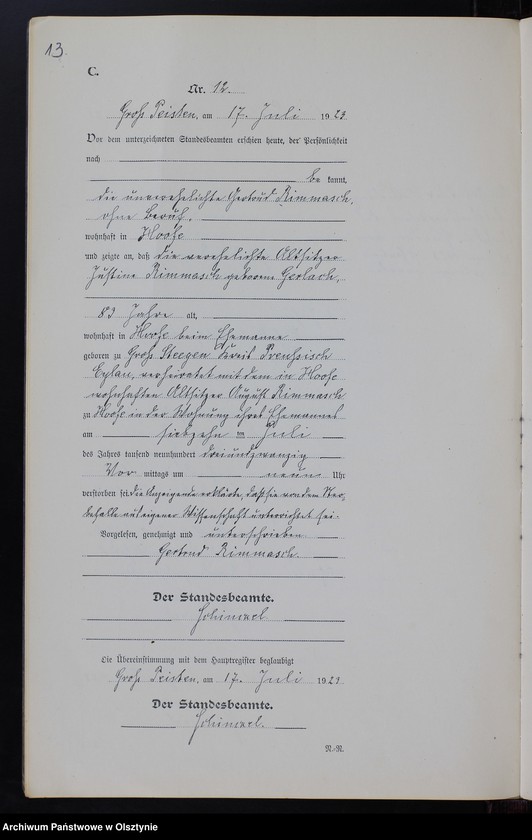 13
C.
Nr. 12.
Groß Peisten, am 17. Juli 1923.
Vor dem unterzeichneten Standesbeamten erschien heute, der Persönlichkeit
nach
be kannt,
die unverehelichte Gertrud Rimmasch,
ohne Beruf,
wohnhaft in Hoofe
und zeigte an, daß die verehelichte Altsitzer
Justine Rimmasch geborene Gerlach,
83 Jahre alt,
wohnhaft in Hoofe beim Ehemanne
geboren zu Groß Steegen Kreis Preußisch
Eylau, verheiratet mit dem in Hoofe
wohnhaften Altsitzer August Rimmasch
zu Hoofe in der Wohnung ihres Ehemannes
am siebzehn ten Juli
des Jahres tausend neunhundert dreiundzwanzig
Vor mittags um neun Uhr
verstorben sei. Die Anzeigende erklärte, daß sie von dem Ster-
befalle aus eigener Wissenschaft unterrichtet sei.
Vorgelesen, genehmigt und unterschrieben
Gertrud Rimmasch.
Der Standesbeamte.
Schimmel
Die Übereinstimmung mit dem Hauptregister beglaubigt
Groß Peisten, am 17. Juli 1923
Der Standesbeamte.
Schimmel.
N.-R.
Archiwum Państwowe w Olsztynie